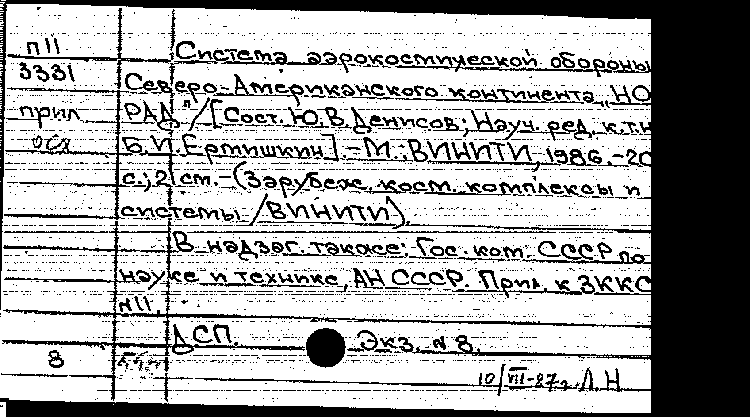 п11 Система аэрокосмической обороны
3331 Северо-Американского континента „НО
прил РАД"/[Сост. Ю.В. Денисов; Науч. ред. к.т.н
Б.И. Ермишкин].-М.: ВИНИТИ, 1986.-20
с.; 21 см.-(Зарубеж. косм. комплексы и
системы /ВИНИТИ).
В надзаг. также: Гос. ком. СССР по
науке и технике, АН СССР. Прил. к ЗККС
N11.
ДСП. Экз. N 8.
8
10/VII-87г. Л.Н